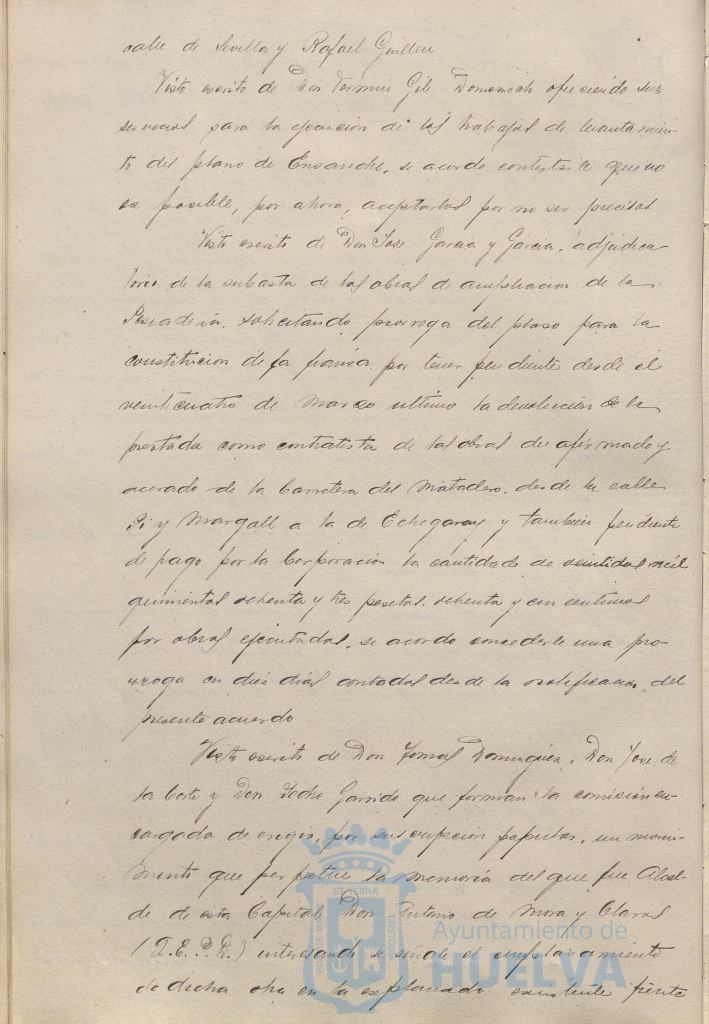 calle de Sevilla y Rafael Guillen
Visto escrito de Don Fermin Gil Domenech ofreciendo sus
servicios para la ejecucion de los trabajos de levantamien-
to del plano de Ensanche, se acordo contestarle que no
es posible, por ahora, aceptarlos por no ser precisos
Visto escrito de Don Jose Garcia y Garcia, adjudica-
torio de la subasta de las obras de ampliacion de la
Pescaderia, solicitando prorroga del plaso para la
constitucion de la fiansa por tener pendiente desde el
veinticuatro de Marzo ultimo la devolucion de la
prestada como contratista de las obras de afirmado y
acerado de la Carretera del Matadero, desde la calle
Pi y Margall a la de Echegaray y tambien pendiente
de pago por la Corporacion la cantidad de veintidos mil
quinientas ochenta y tres pesetas, ochenta y un centimos
por obras ejecutadas, se acordo concederle una pro-
rroga en dies dias contados desde la notificacion del
presente acuerdo
Visto escrito de Don Tomas Dominguez, Don Jose de
la Corte y Don Pedro Garrido que forman la comision en-
cargada de erigir, por suscripcion popular, un monu-
mento que perpetue la memoria del que fue Alcal-
de de esta Capital Don Antonio de Mora y Claros
(Q.E.P.D.) interesando se señale el emplazamiento
de dicha obra en la explanada existente frente
Ayuntamiento de
HUELVA